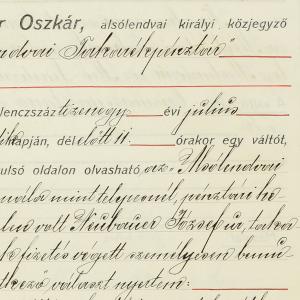 r Oszkár, alsólendvai királyi közjegyző
ndvai Takarékpénztár"
lenczszáz tizenegy évi julius
iknapján, délelőtt 11. órakor egy váltót,
ulsó oldalon olvasható az „Alsólendvai
mint telepesnél, pénztári he-
volt Neubauer József ur, taka-
k fizetés végett személyesen bemu-
választ nyertem: